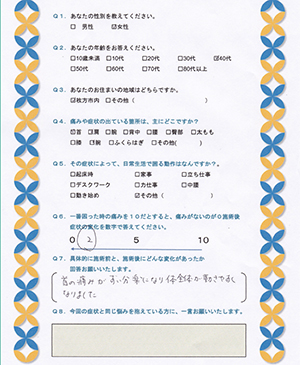 Q1．あなたの性別を教えてください。
□ 男性 ☑女性
Q2．あなたの年齢をお答えください。
□10歳未満 □10代 □20代 □30代 ☑40代
□50代 □60代 □70代 □80代以上
Q3．あなたのお住まいの地域はどちらですか。
☑枚方市内 □その他（ ）
Q4．痛みや症状の出ている箇所は、主にどこですか？
☑首 □肩 □腕 □背中 □腰 □臀部 □太もも
□膝 □ふくらはぎ □その他（ ）
Q5．その症状によって、日常生活で困る動作はなんですか。
□起床時 □家事 □立ち仕事
□デスクワーク □力仕事 □中腰
□動き始め ☑その他（ ）
Q6．一番困った時の痛みを10だとすると、痛みがないのが0施術後
症状の変化を数字で答えてください。
0 2 5 10
Q7．具体的に施術前と、施術後にどんな変化があったか
回答お願いいたします。
首の痛みがずい分楽になり体全体が動きやすく
なりました
Q8．今回の症状と同じ悩みを抱えている方に、一言お願いいたします。